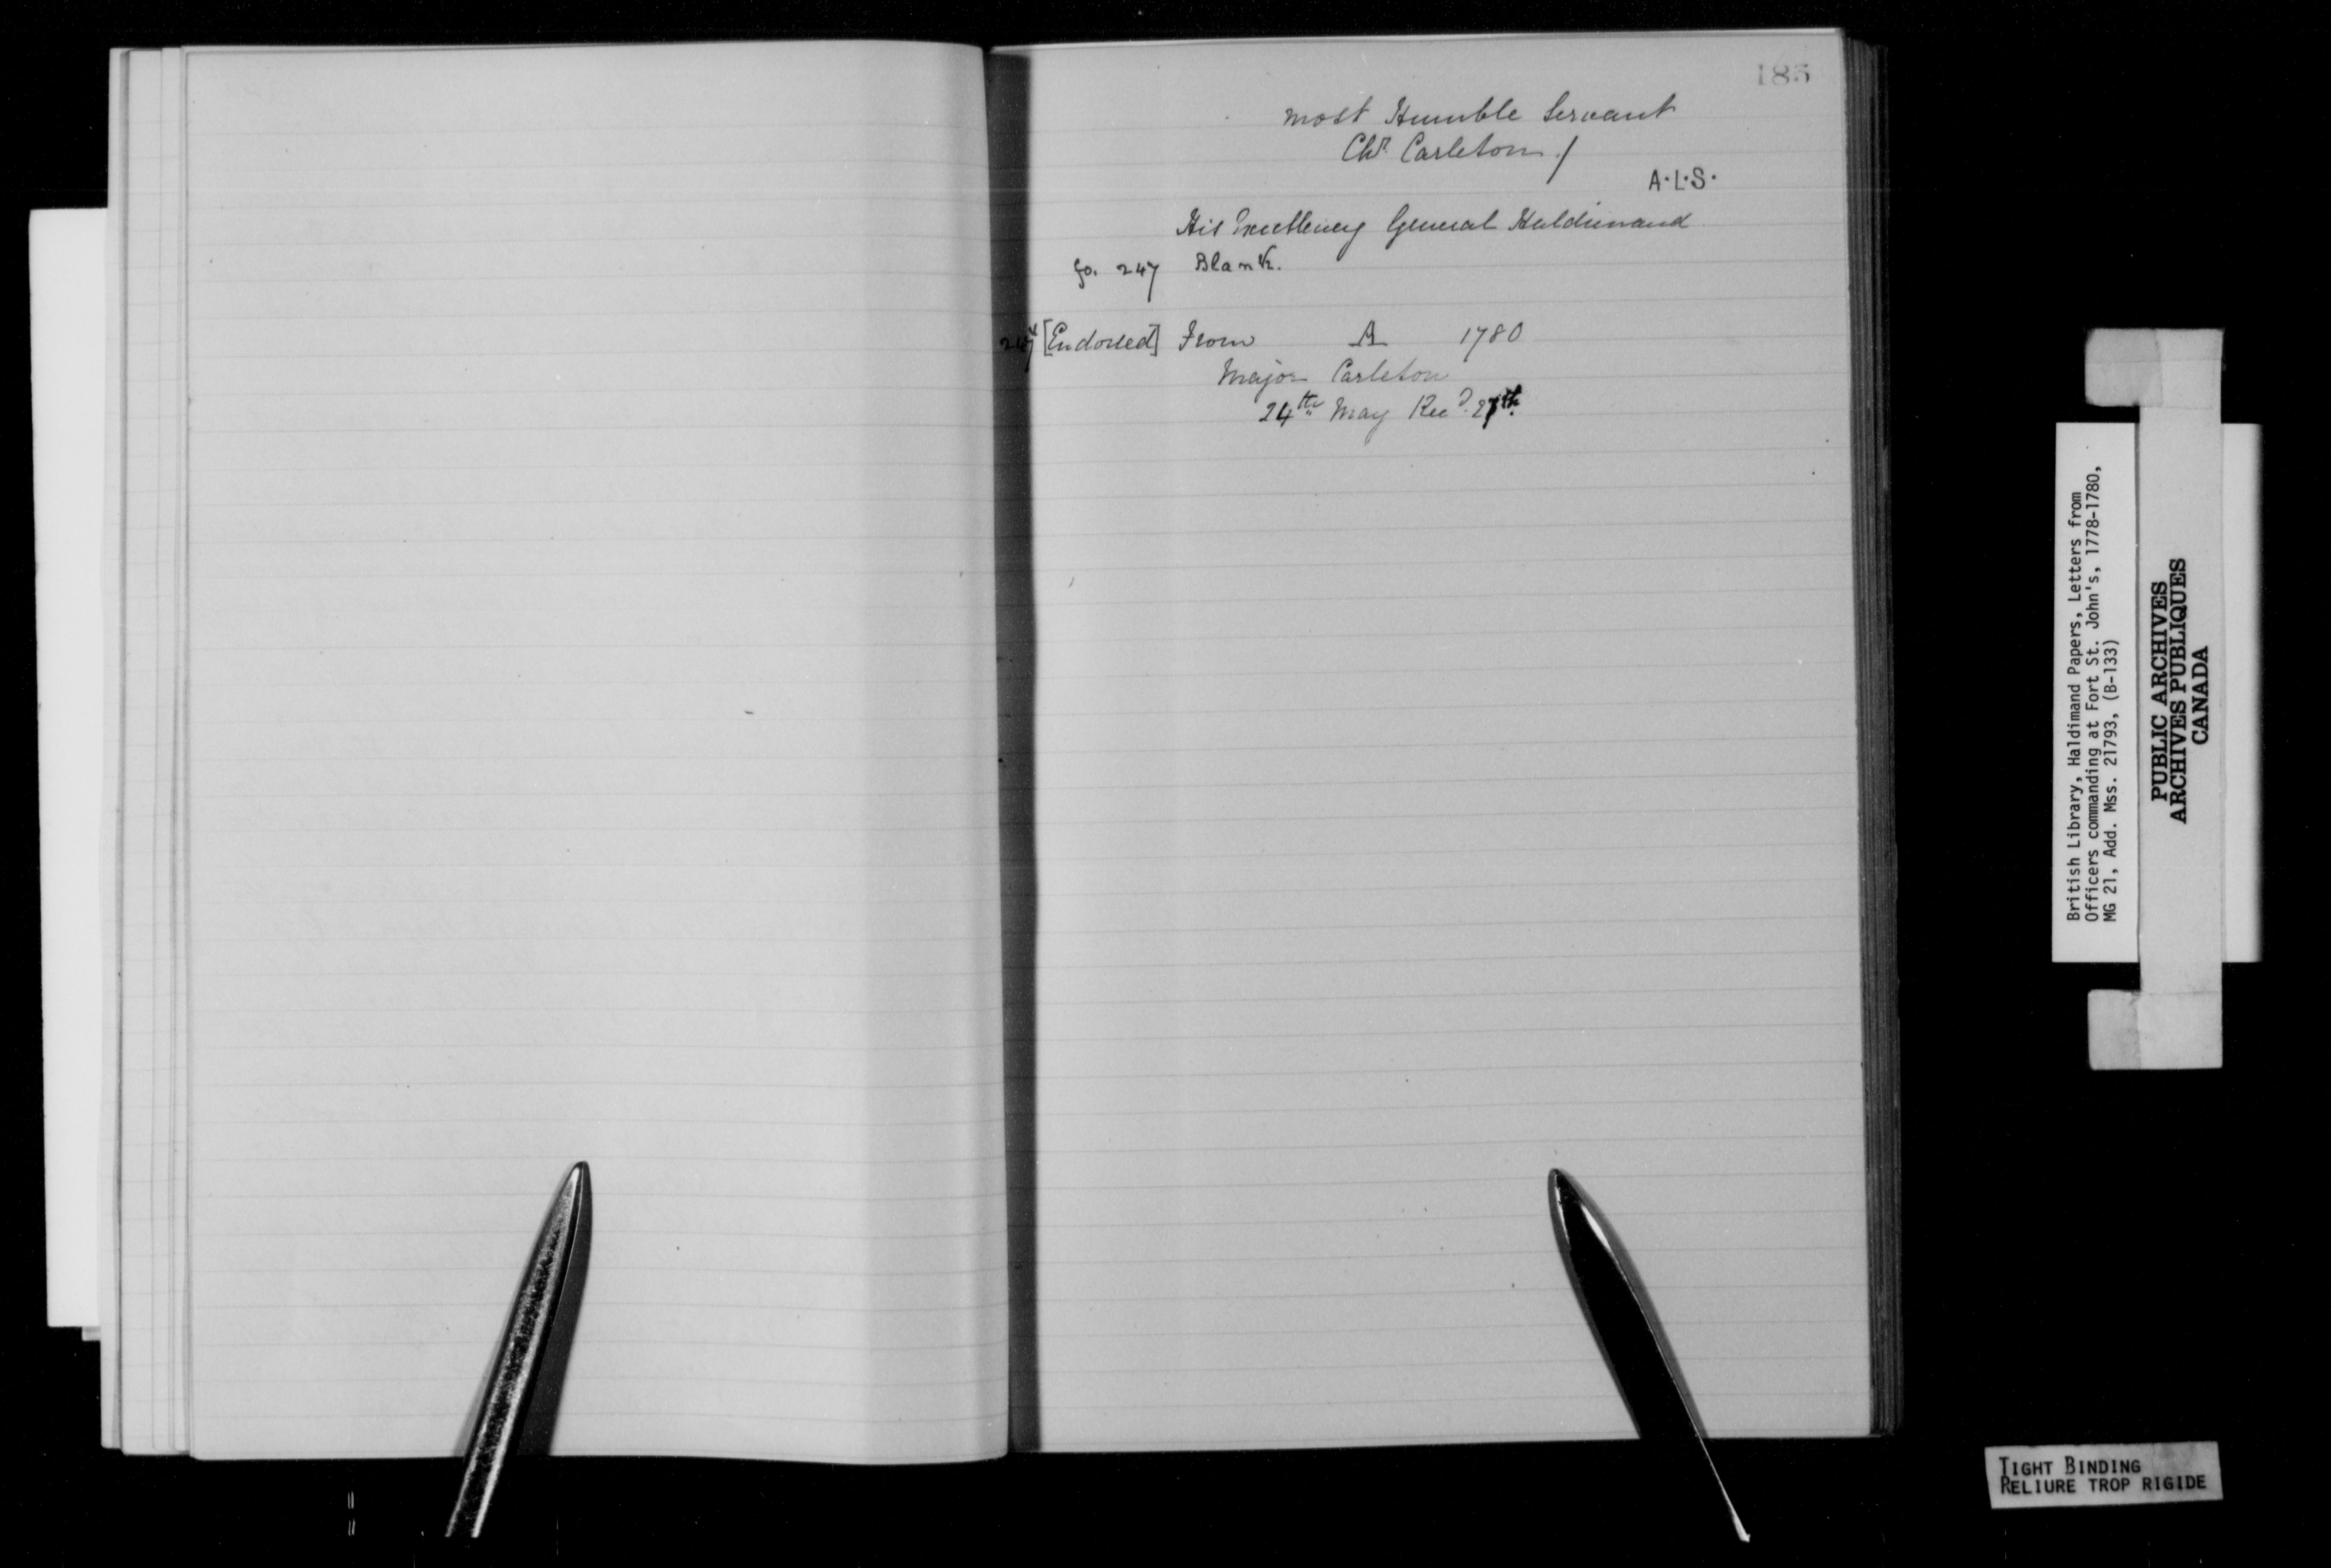 185
most Humble Servant
Chr. Carleton /
A.L.S.
His Excellency General Haldimand
fo. 247 Blank.
[Endorsed] From A 1780
Major Carleton
24th May Recd. 27th.
British Library, Haldimand Papers, Letters from
Officers commanding at Fort St. John's, 1778-1780,
MG 21, Add. Mss. 21793, (B-133)
PUBLIC ARCHIVES
ARCHIVES PUBLIQUES
CANADA
TIGHT BINDING
RELIURE TROP RIGIDE